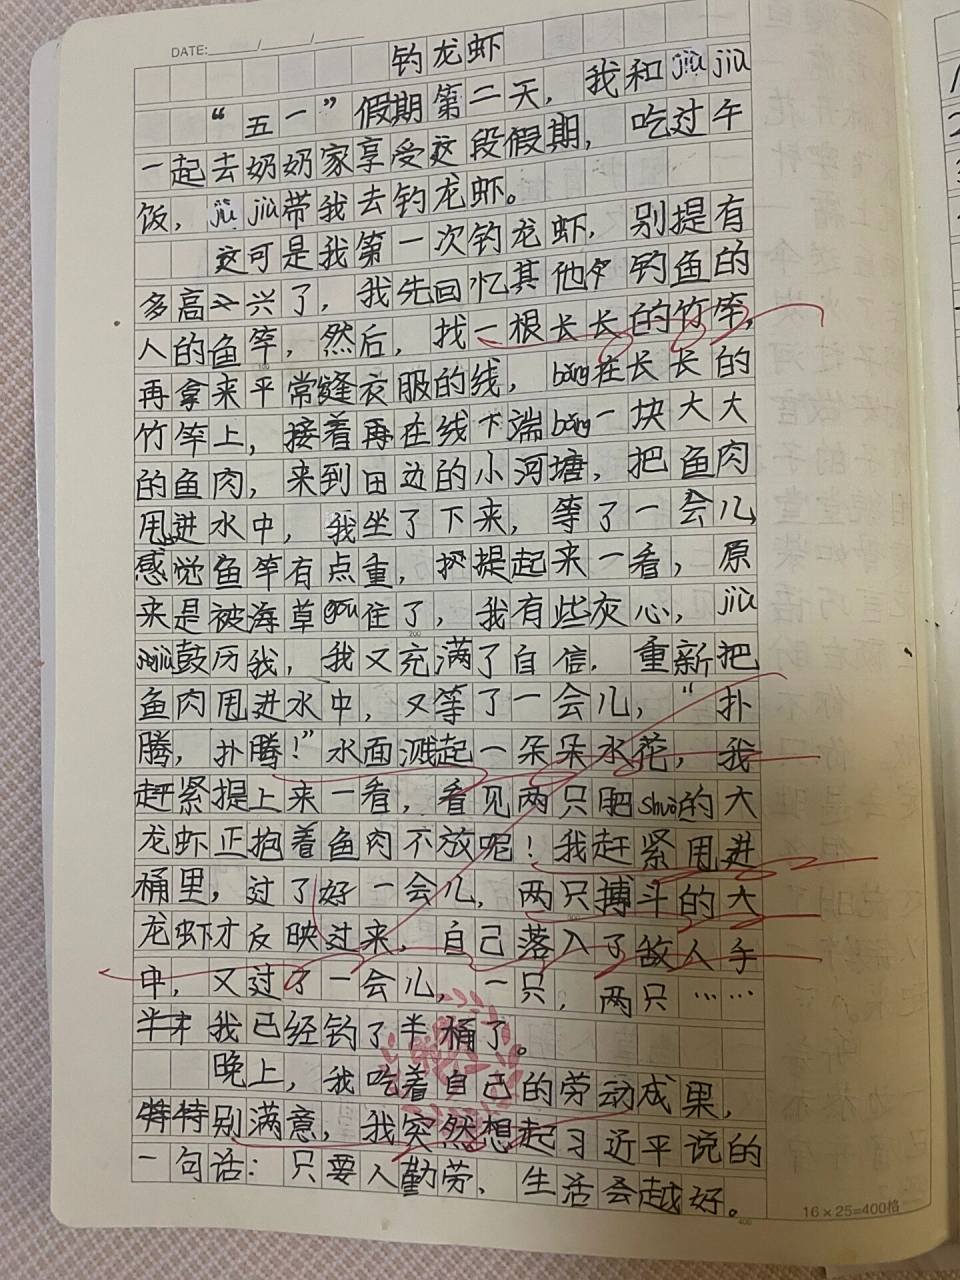 DATE:____/____/____
钓龙虾
“五一”假期第二天，我和jiù jiù
一起去奶奶家享受这段假期，吃过午
饭，jiù jiù带我去钓龙虾。
这可是我第一次钓龙虾，别提有
多高兴了，我先回忆其他钓鱼的
人的鱼竿，然后，找一根长长的竹竿，
再拿来平常缝衣服的线，bǎng在长长的
竹竿上，接着再在线下端bǎng一块大大
的鱼肉，来到田边的小河塘，把鱼肉
甩进水中，我坐了下来，等了一会儿，
感觉鱼竿有点重，提起来一看，原
来是被海草gōu住了，我有些灰心，jiù
jiù鼓历我，我又充满了自信，重新把
鱼肉甩进水中，又等了一会儿，“扑
腾，扑腾！”水面溅起一朵朵水花，我
赶紧提上来一看，看见两只肥shuò的大
龙虾正抱着鱼肉不放呢！我赶紧甩进
桶里，过了好一会儿，两只搏斗的大
龙虾才反映过来，自己落入了敌人手
中，又过了一会儿，一只，两只……
我已经钓了半桶了。
晚上，我吃着自己的劳动成果，
特别满意，我突然想起习近平说的
一句话：只要人勤劳、生活会越好。
16×25=400格